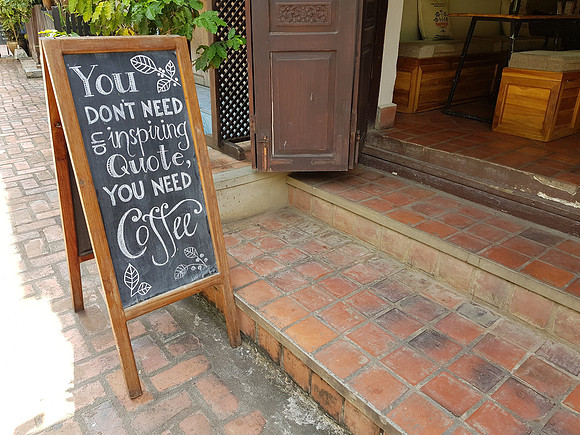 You
DON'T NEED
an inspiring
Quote,
YOU NEED
Coffee